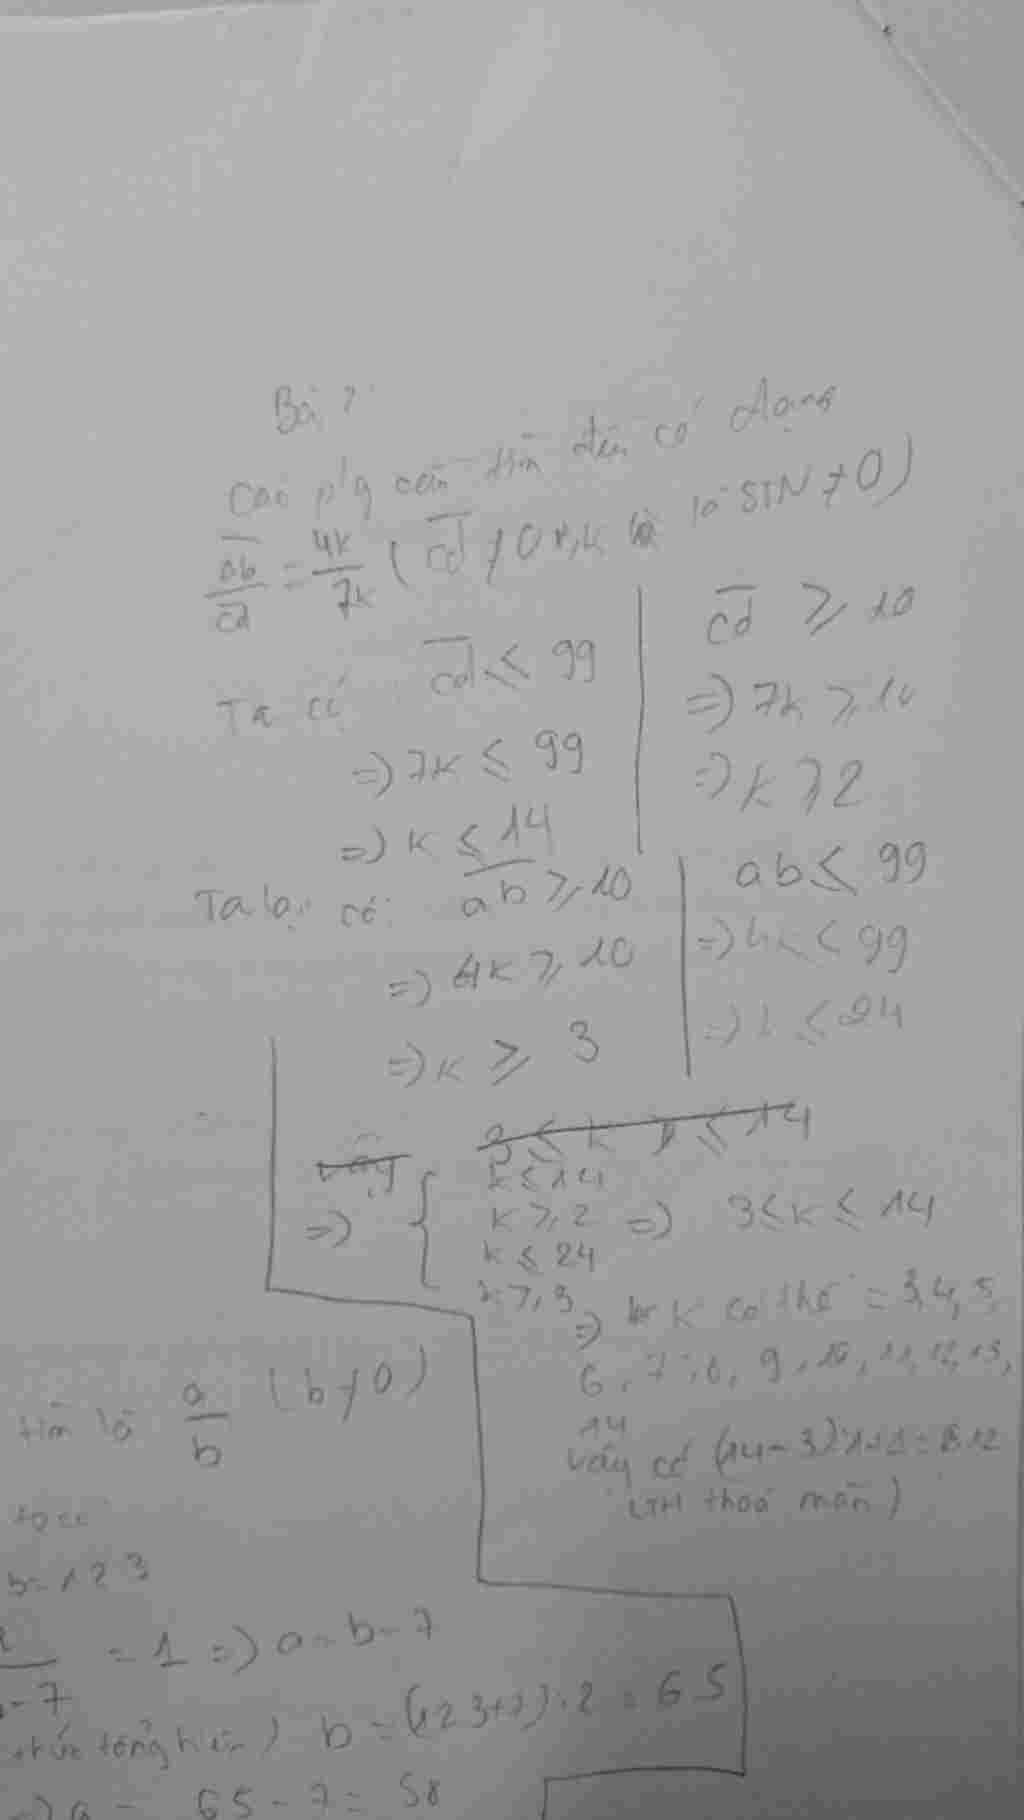 Bài 7
Các p/g cần tìm đều có dạng
ab/cd = 4k/7k ( cd ≠ 0 , k là số STN ≠ 0)
Ta có cd ≤ 99
=> 7k ≤ 99
=> k ≤ 14
cd ≥ 10
=> 7k ≥ 10
=> k ≥ 2
Ta lại có: ab ≥ 10
=> 4k ≥ 10
=> k ≥ 3
ab ≤ 99
=> 4k ≤ 99
=> k ≤ 24
=> { k ≤ 14
k ≥ 2 => 3 ≤ k ≤ 14
k ≤ 24
k ≥ 3
=> k có thể = 3,4,5,
6, 7, 8, 9, 10, 11, 12, 13,
14
Vậy có (14-3):1+1=12
(TH thoả mãn)
tìm là a/b (b ≠ 0)
ta có
b=123
-7 = 1 => a=b-7
thức tổng hiệu) b = (123+7):2 = 65
=> a = 65-7 = 58